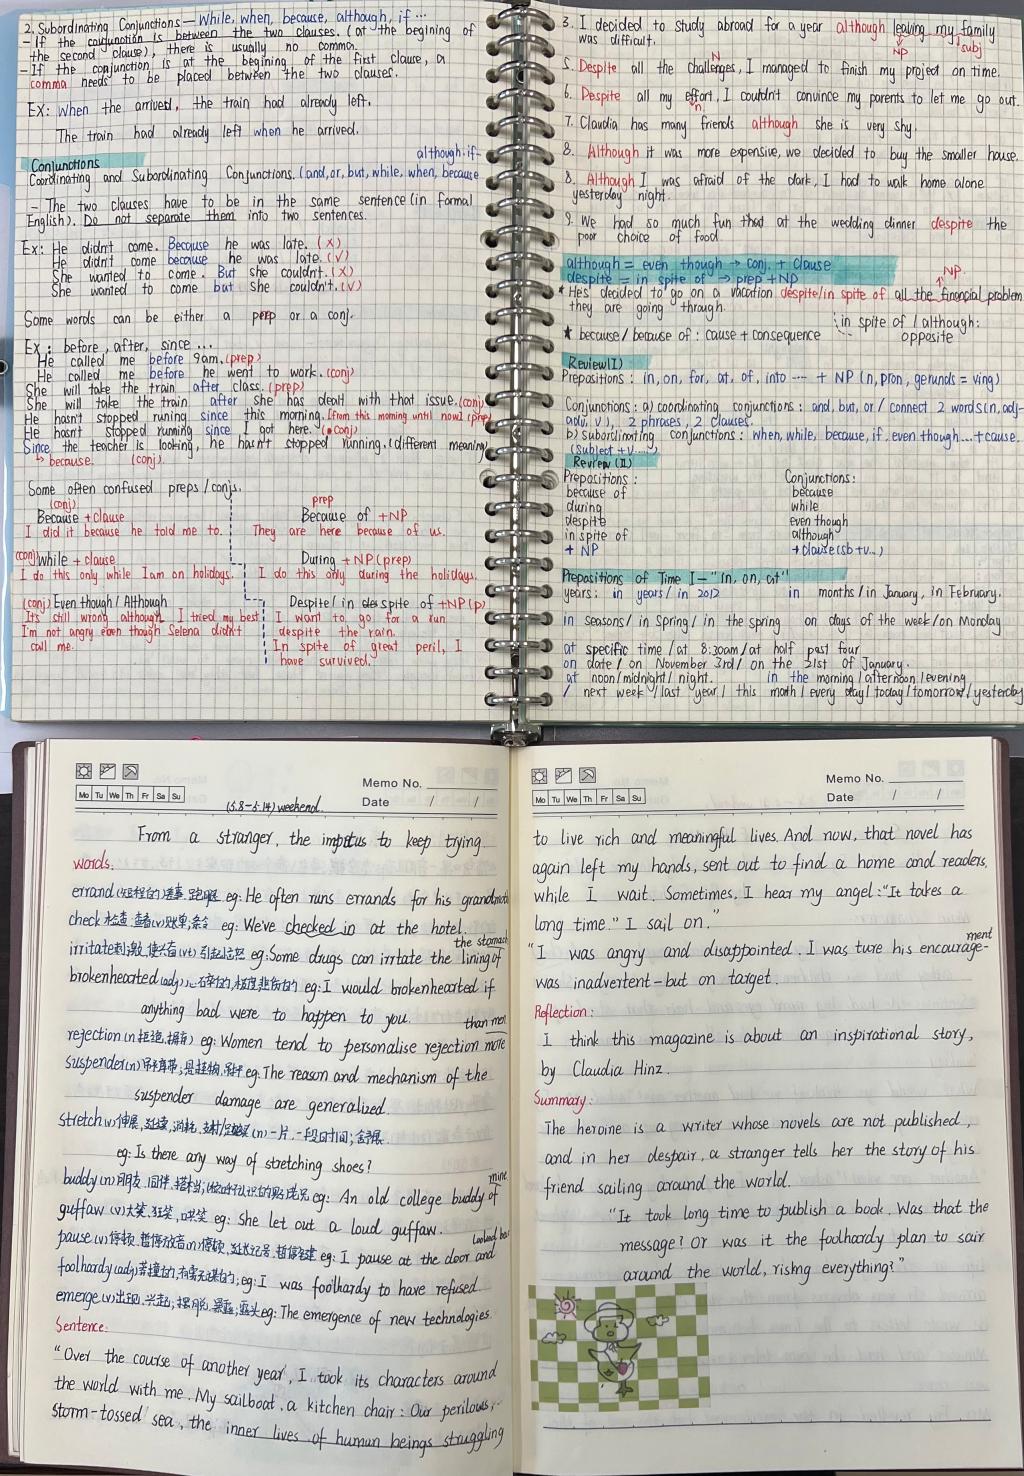 2. Subordinating Conjunctions — While, when, because, although, if ...
- If the conjunction is between the two clauses. (at the begining of
the second clause), there is usually no comma.
- If the conjunction is at the begining of the first clause, a
comma needs to be placed between the two clauses.
EX: When the arrived, the train had already left.
The train had already left when he arrived.
Conjunctions
although.if
Coordinating and Subordinating Conjunctions. (and,or,but,while,when,because
- The two clauses have to be in the same sentence (in formal
English). Do not separate them into two sentences.
Ex: He didn't come. Because he was late. (X)
He didn't come because he was late. (V)
She wanted to come. But she couldn't. (X)
She wanted to come but she couldn't. (V)
Some words can be either a prep or a conj.
Ex: before, after, since ...
He called me before 9am. (prep)
He called me before he went to work. (conj)
She will take the train after class. (prep)
She will take the train after she has dealt with that issue. (conj)
He hasn't stopped runing since this morning. [from this morning until now] (prep)
He hasn't stopped running since I got here. (conj)
Since the teacher is looking, he hasn't stopped running. (different meaning)
↳ because. (conj).
Some often confused preps / conjs.
(conj) prep
Because + clause Because of + NP
I did it because he told me to. They are here because of us.
(conj) While + clause During + NP (prep)
I do this only while I am on holidays. I do this only during the holidays.
(conj) Even though / Although Despite / in spite of + NP (p)
It's still wrong although I tried my best I want to go for a run
I'm not angry even though Selena didn't despite the rain.
call me. In spite of great peril, I
have survived.
3. I decided to study abroad for a year although leaving my family
was difficult. NP subj
N
5. Despite all the challenges, I managed to finish my project on time.
6. Despite all my effort, I couldn't convince my parents to let me go out.
n
7. Claudia has many friends although she is very shy.
8. Although it was more expensive, we decided to buy the smaller house.
8. Although I was afraid of the dark, I had to walk home alone
yesterday night.
9. We had so much fun that at the wedding dinner despite the
poor choice of food
although = even though → conj. + clause
despite = in spite of → prep + NP
NP.
* He's decided to go on a vacation despite/in spite of all the financial problem
they are going through.
in spite of / although:
opposite
* because / because of : cause + consequence
Review(I)
Prepositions : in, on, for, at, of, into --- + NP (n, pron, gerunds = ving)
Conjunctions: a) coordinating conjunctions: and, but, or / connect 2 words (n, adj-
adv, v), 2 phrases, 2 clauses.
b) subordinating conjunctions: when, while, because, if, even though...+cause.
(subject + v.....)
Review (II)
Prepositions : Conjunctions:
because of because
during while
despite even though
in spite of although
+ NP → clause (sb+v...)
Prepositions of Time I - "In, on, at"
years: in years / in 2012 in months / in January, in February.
in seasons / in Spring / in the spring on days of the week / on Monday
at specific time / at 8:30am / at half past four
on date / on November 3rd / on the 21st of January.
at noon / midnight / night. in the morning / afternoon / evening
/ next week / last year / this month / every day / today / tomorrow / yesterday
Mo Tu We Th Fr Sa Su
Memo No.
Date / /
(5.8-5.14) weekend.
From a stranger, the impetus to keep trying
words.
errand (短程的)差事, 跑腿 eg: He often runs errands for his grandmoth
check 检查, 查看(v)账单 eg: We've checked in at the hotel.
the stomach
irritate 刺激, 使兴奋(vt) eg: Some drugs can irritate the lining of
brokenhearted (adj) 心碎的, 极度悲伤的 eg: I would brokenhearted if
anything bad were to happen to you.
than men
rejection (n 拒绝, 摒弃) eg: Women tend to personalise rejection more
suspender (n) 吊裤带, 悬挂物 eg: The reason and mechanism of the
suspender damage are generalized.
stretch (v) 伸展, 延续, 消耗 (n) 一片, 一段时间; 舒展
eg: Is there any way of stretching shoes?
mine
buddy (n) 朋友, 同伴, 搭档 eg: An old college buddy of
guffaw (v) 大笑, 狂笑, 哄笑 eg: She let out a loud guffaw.
looked bac
pause (v) 停顿, 暂停 (n) 停顿, 延长记号, 暂停键 eg: I pause at the door and
foolhardy (adj) 莽撞的, 有勇无谋的; eg: I was foolhardy to have refused.
emerge (v) 出现, 兴起; 摆脱, 暴露; 露头 eg: The emergence of new technologies.
Sentence:
"Over the course of another year, I took its characters around
the world with me. My sailboat, a kitchen chair: Our perilous,
storm-tossed sea, the inner lives of human beings struggling
Mo Tu We Th Fr Sa Su
Memo No.
Date / /
to live rich and meaningful lives. And now, that novel has
again left my hands, sent out to find a home and readers,
while I wait. Sometimes, I hear my angel: "It takes a
long time." I sail on."
ment
"I was angry and disappointed. I was ture his encourage-
was inadvertent - but on target.
Reflection:
I think this magazine is about an inspirational story,
by Claudia Hinz.
Summary:
The heroine is a writer whose novels are not published,
and in her despair, a stranger tells her the story of his
friend sailing around the world.
"It took long time to publish a book. Was that the
message? Or was it the foolhardy plan to sair
around the world, risking everything?"